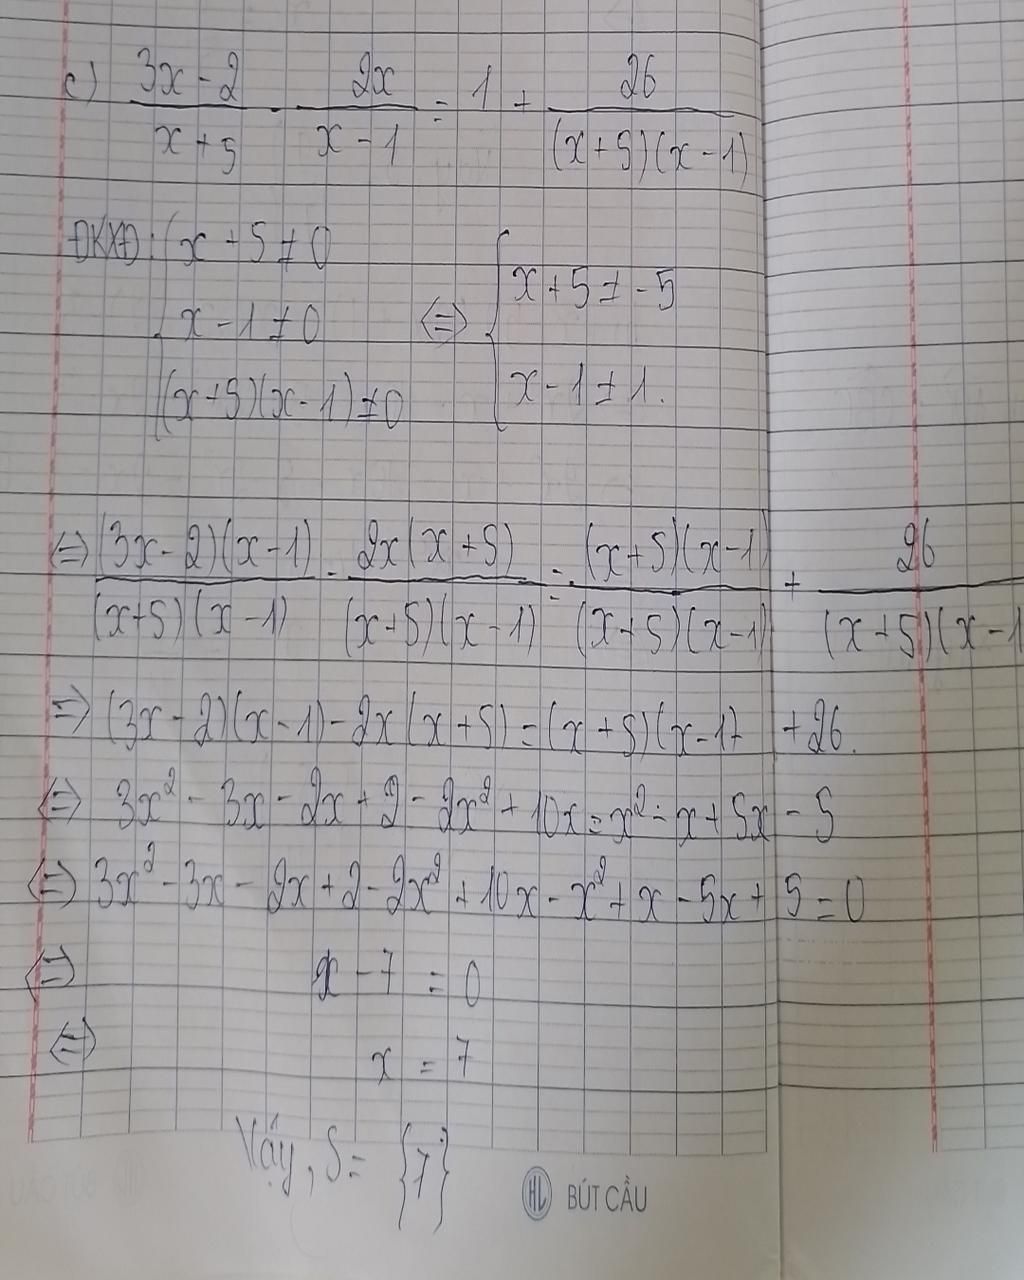 c) (3x - 2)/(x + 5) - 2x/(x - 1) = 1 + 26/((x + 5)(x - 1))
ĐKXĐ: { x + 5 ≠ 0
x - 1 ≠ 0
(x + 5)(x - 1) ≠ 0
⇔ { x + 5 ≠ -5
x - 1 ≠ 1.
⇔ (3x - 2)(x - 1)/((x + 5)(x - 1)) - 2x(x + 5)/((x + 5)(x - 1)) = (x + 5)(x - 1)/((x + 5)(x - 1)) + 26/((x + 5)(x - 1
⇒ (3x - 2)(x - 1) - 2x(x + 5) = (x + 5)(x - 1) + 26.
⇔ 3x² - 3x - 2x + 2 - 2x² + 10x = x² - x + 5x - 5
⇔ 3x² - 3x - 2x + 2 - 2x² + 10x - x² + x - 5x + 5 = 0
⇔ x - 7 = 0
⇔ x = 7
Vậy, S = {7}
HL BÚT CẦU